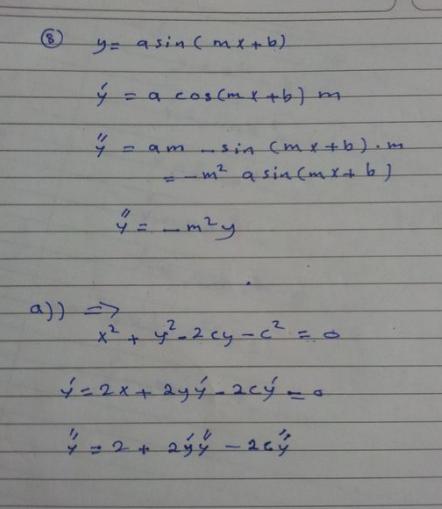 ⑧ y = a sin(mx+b)
y' = a cos(mx+b) m
y'' = am -sin (mx+b).m
= -m² a sin(mx+b)
y'' = -m²y
a)) ⇒
x² + y² - 2cy - c² = 0
y' = 2x + 2yy' - 2cy' = 0
y'' = 2 + 2y'y'' - 2cy''